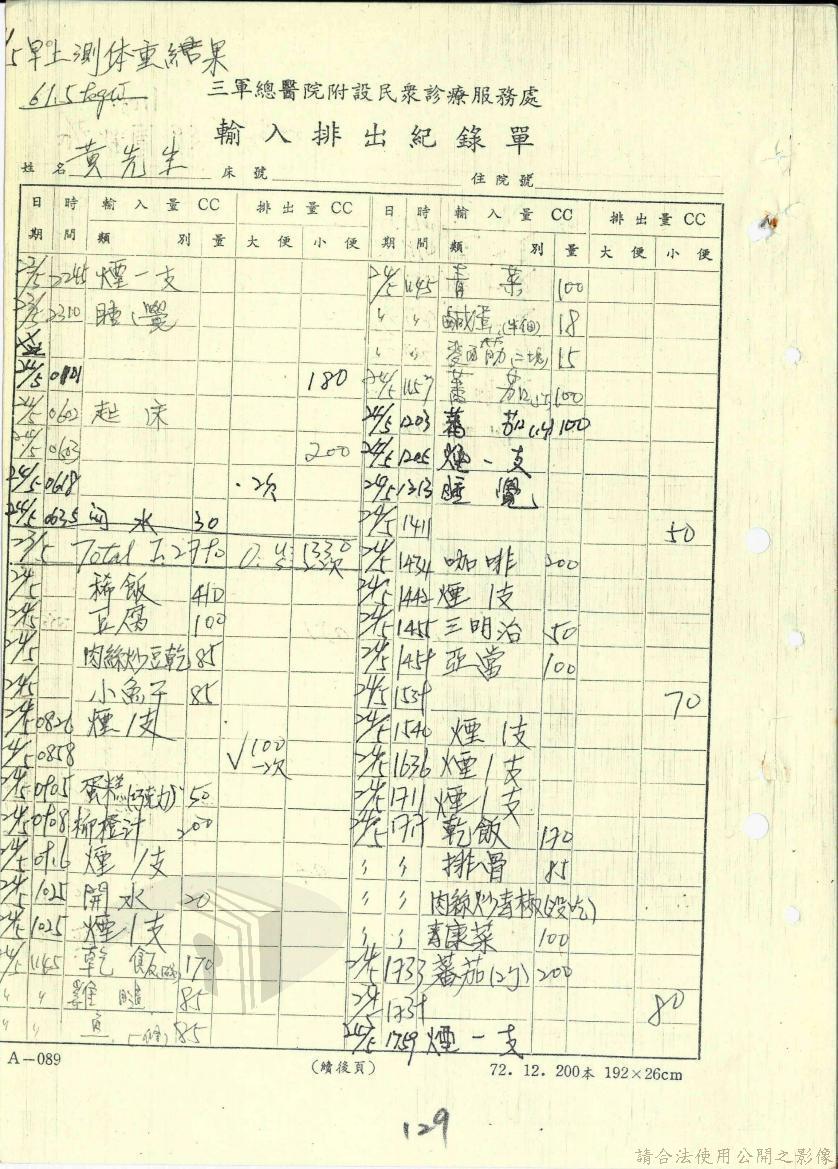 /5早上測体重結果
61.5
三軍總醫院附設民衆診療服務處
輸入排出紀錄單
姓名 黃先生 床號 住院號
日期 時間 輸入量CC 類別 量 排出量CC 大便 小便
23/5 2245 煙一支
23/5 2310 睡覺
24/5 0101 180
24/5 0602 起床
24/5 0603 200
24/5 0618 1次
24/5 0635 開水 30
23/5 Total I: 2790 O: 1330
24/5 稀飯 410
24/5 豆腐 100
24/5 肉絲炒豆乾 85
24/5 小魚干 85
24/5 0826 煙1支
24/5 0858 √100 一次
24/5 0905 蛋糕(巧克力) 50
24/5 0908 柳橙汁 200
24/5 0916 煙1支
24/5 1025 開水 20
24/5 1025 煙1支
24/5 1145 乾飯 170
〃 〃 雞腿 85
〃 〃 魚(一條) 85
日期 時間 輸入量CC 類別 量 排出量CC 大便 小便
24/5 1145 青菜 100
〃 〃 鹹蛋(半個) 18
〃 〃 麥面筋(二塊) 15
24/5 1157 蕃茄 100
24/5 1203 蕃茄 100
24/5 1205 煙一支
24/5 1313 睡覺
24/5 1411 50
24/5 1434 咖啡 200
24/5 1442 煙1支
24/5 1455 三明治 50
24/5 1459 亞當 100
24/5 1539 70
24/5 1540 煙1支
24/5 1636 煙1支
24/5 1711 煙1支
24/5 1717 乾飯 170
〃 〃 排骨 85
〃 〃 肉絲炒青椒(沒吃)
〃 〃 青康菜 100
24/5 1733 蕃茄(2個) 200
24/5 1739 80
24/5 1759 煙一支
A-089
(續後頁)
72.12.200本 192×26cm
129
請合法使用公開之影像